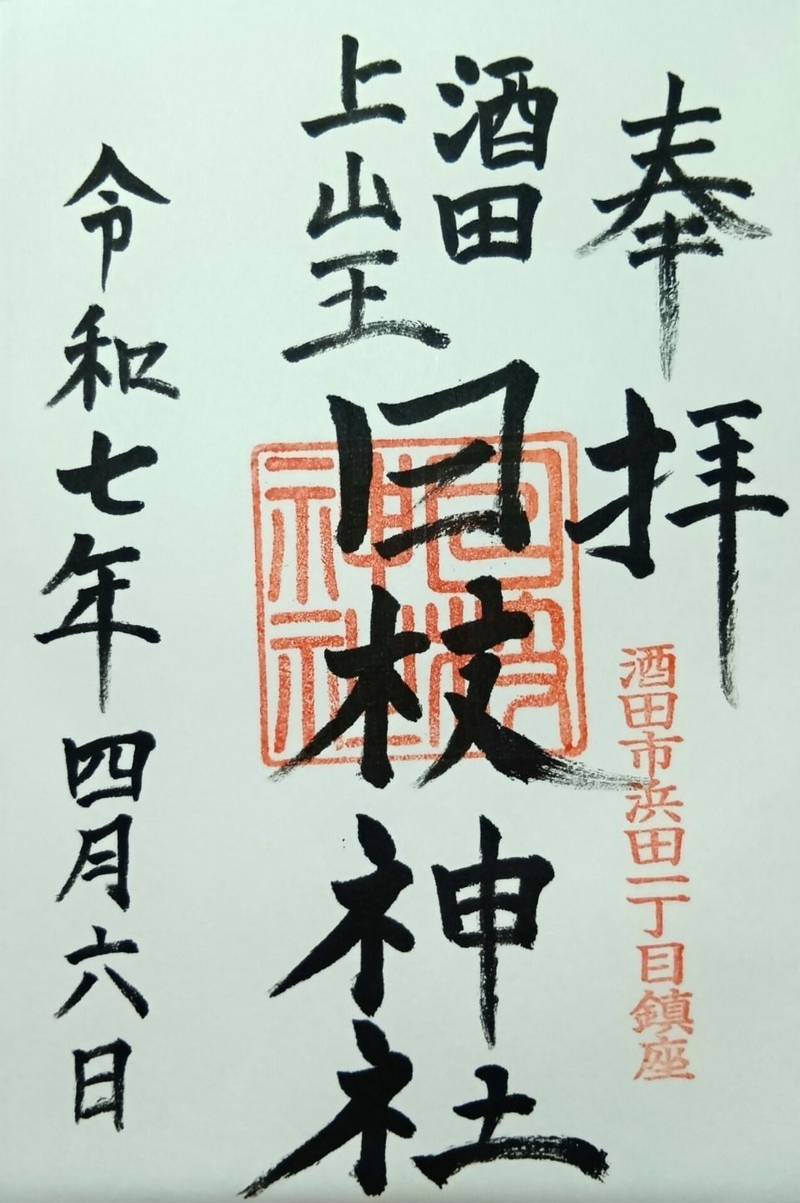 奉拝
酒田市浜田一丁目鎮座
酒田
上山王
日枝神社
日枝神社
令和七年四月六日